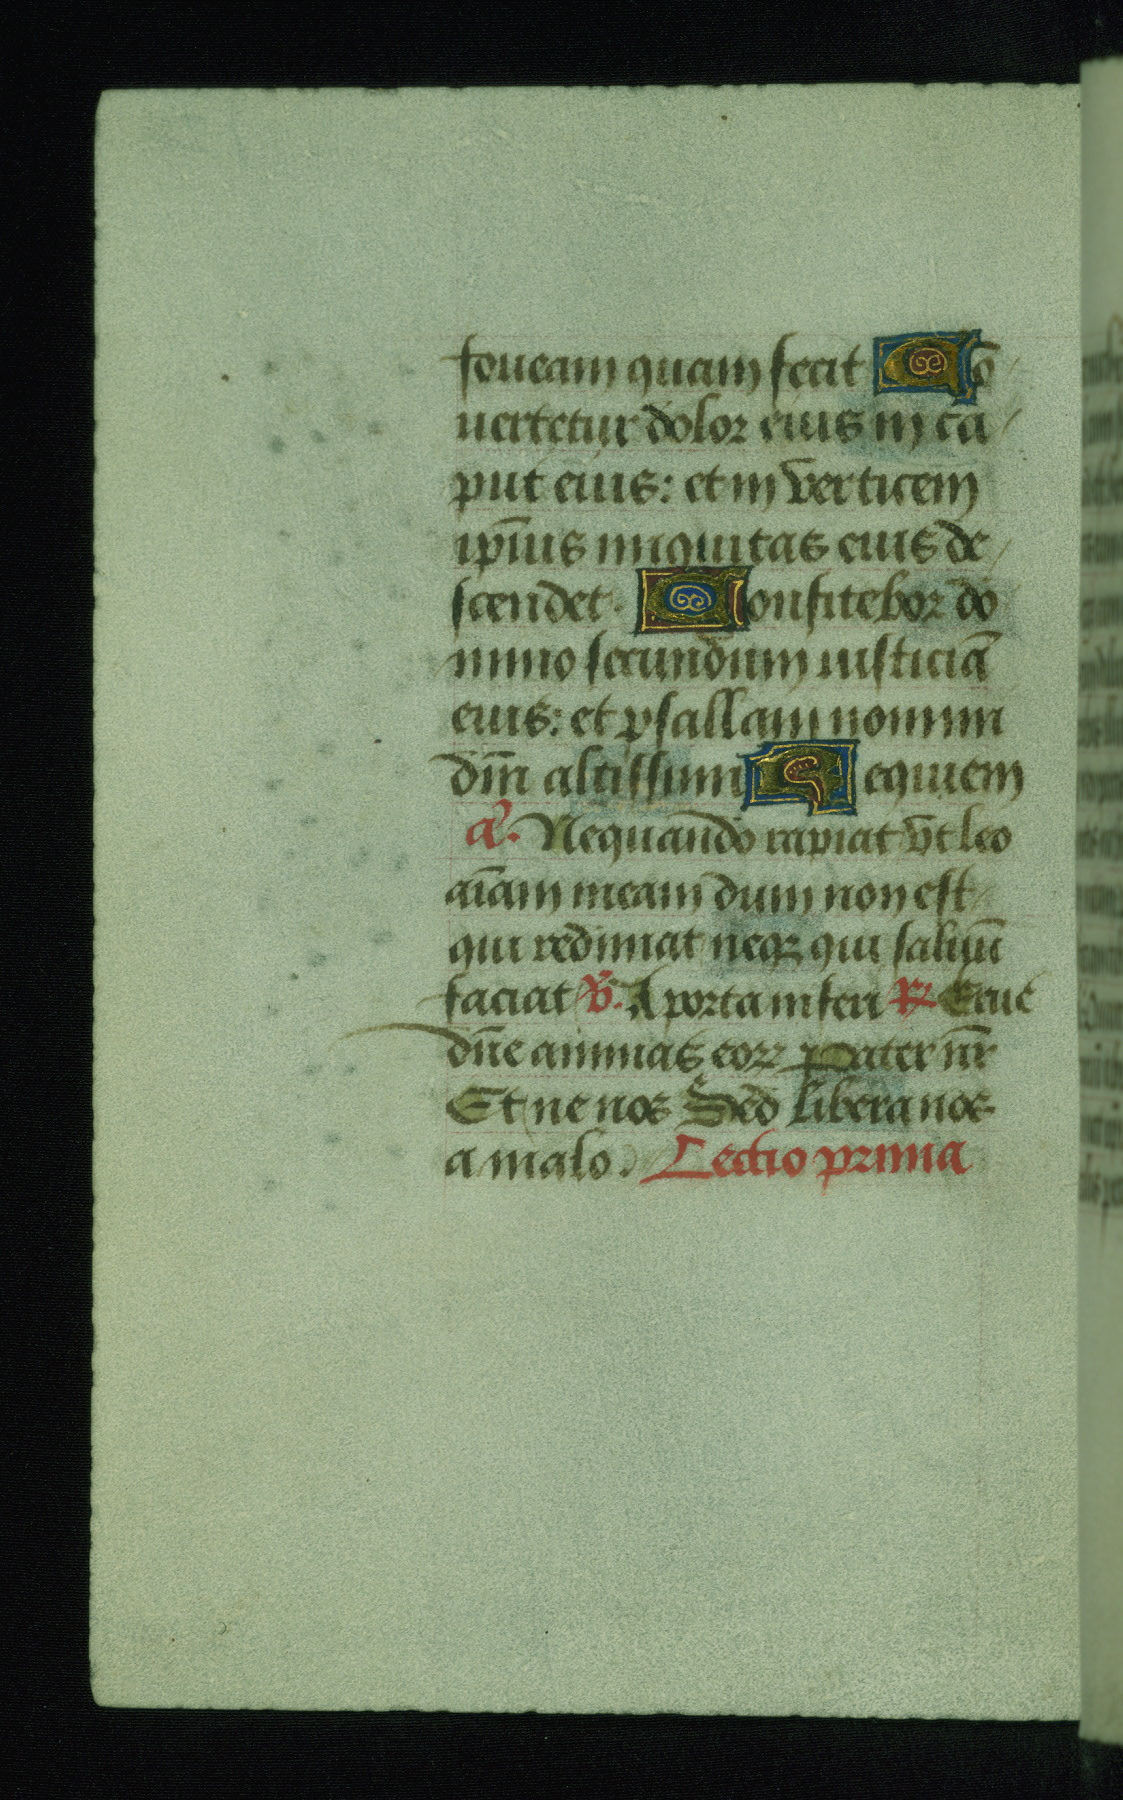 foueam quam fecit Cō
uertetur dolor eius in ca
put eius: et in verticem
ip̄ius iniquitas eius de
scendet. Confitebor do
mino secundum iusticiā
eius: et psallam nomini
dn̄i altissimi Requiem
a᷑. Nequando rapiat vt leo
aīam meam dum non est
qui redimat neqꝫ qui saluū
faciat ℣. A porta inferi ℟. Erue
dn̄e animas eoꝝ Pater nr̄
Et ne nos Sed libera nos
a malo. Lectio prima